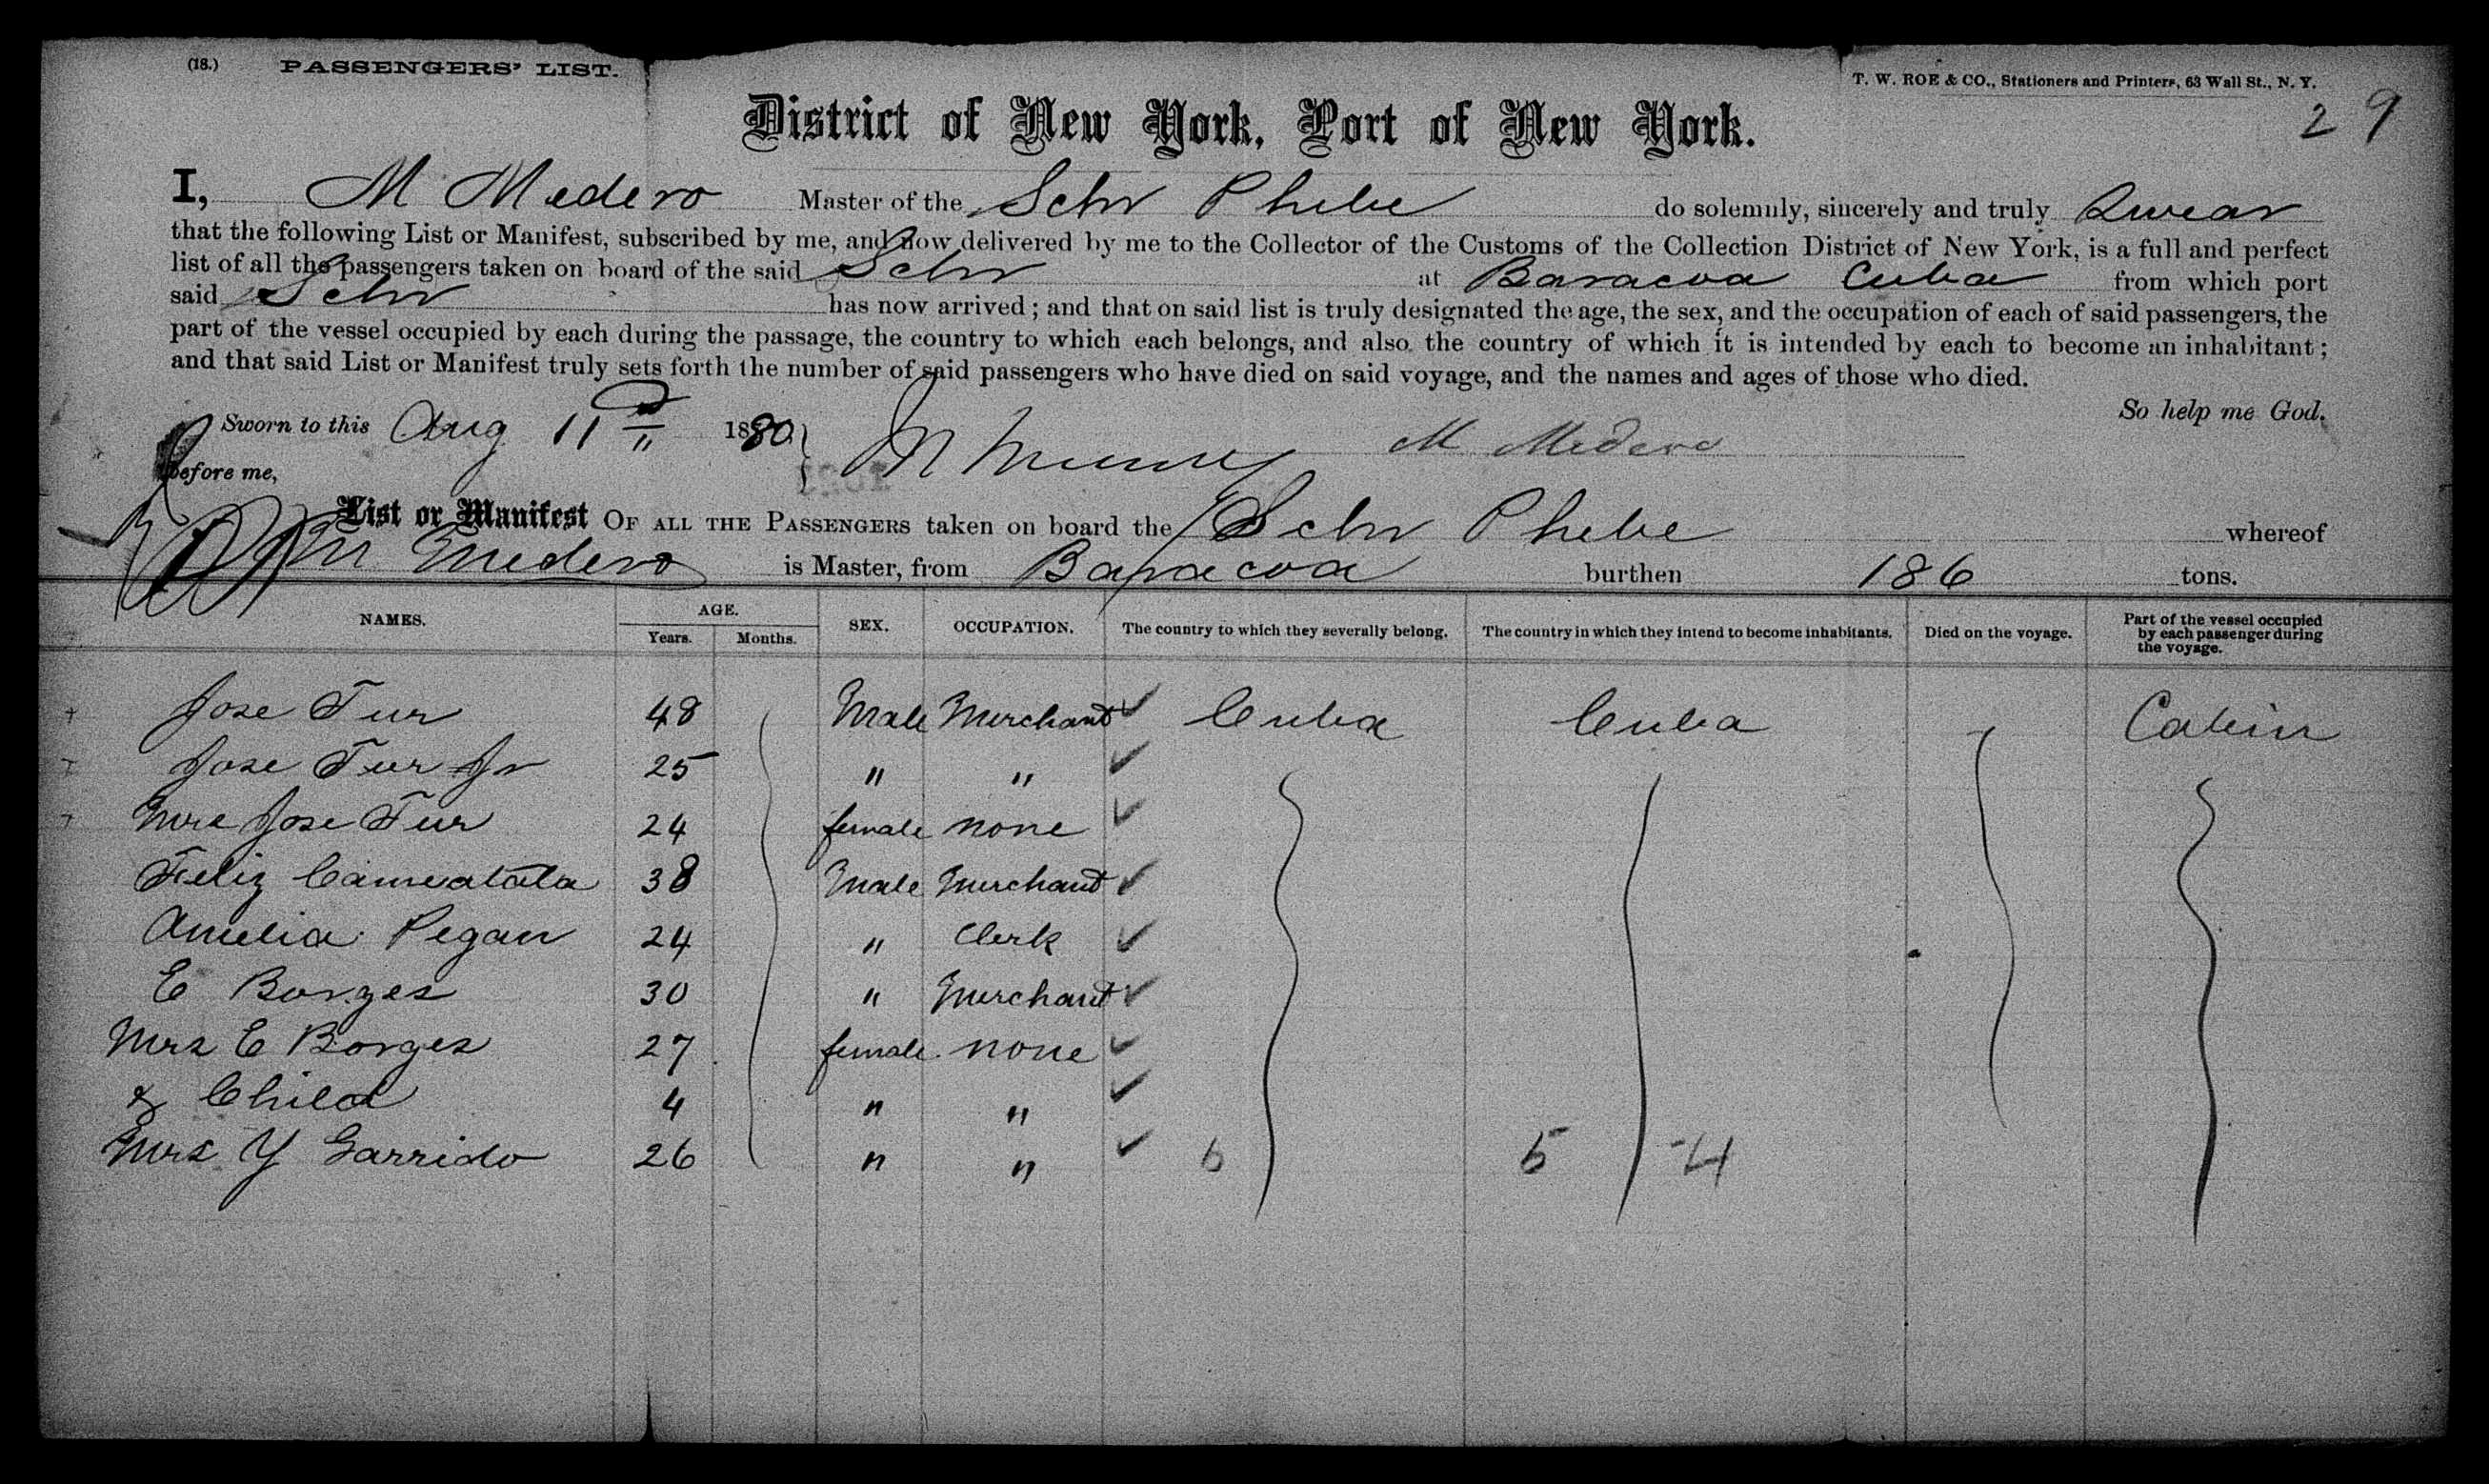 (18.) PASSENGERS' LIST.
T. W. ROE & CO., Stationers and Printers, 63 Wall St., N. Y.
29
District of New York, Port of New York.
I, M Medero Master of the Schr Phebe do solemnly, sincerely and truly Swear
that the following List or Manifest, subscribed by me, and now delivered by me to the Collector of the Customs of the Collection District of New York, is a full and perfect
list of all the passengers taken on board of the said Schr at Baracoa Cuba from which port
said Schr has now arrived; and that on said list is truly designated the age, the sex, and the occupation of each of said passengers, the
part of the vessel occupied by each during the passage, the country to which each belongs, and also the country of which it is intended by each to become an inhabitant;
and that said List or Manifest truly sets forth the number of said passengers who have died on said voyage, and the names and ages of those who died.
So help me God.
Sworn to this Aug 11 1880 M Medero
before me,
List or Manifest OF ALL THE PASSENGERS taken on board the Schr Phebe whereof
M Medero is Master, from Baracoa burthen 186 tons.
NAMES. AGE. Years. Months. SEX. OCCUPATION. The country to which they severally belong. The country in which they intend to become inhabitants. Died on the voyage. Part of the vessel occupied by each passenger during the voyage.
Jose Tur 48 Male Merchant Cuba Cuba Cabin
Jose Tur Jr 25 " "
Mrs Jose Tur 24 female none
Feliz 38 Male Merchant
Amelia Pegan 24 " Clerk
E Borges 30 " Merchant
Mrs E Borges 27 female none
& Child 4 " "
Mrs Y Garrido 26 " " 5 5 -4